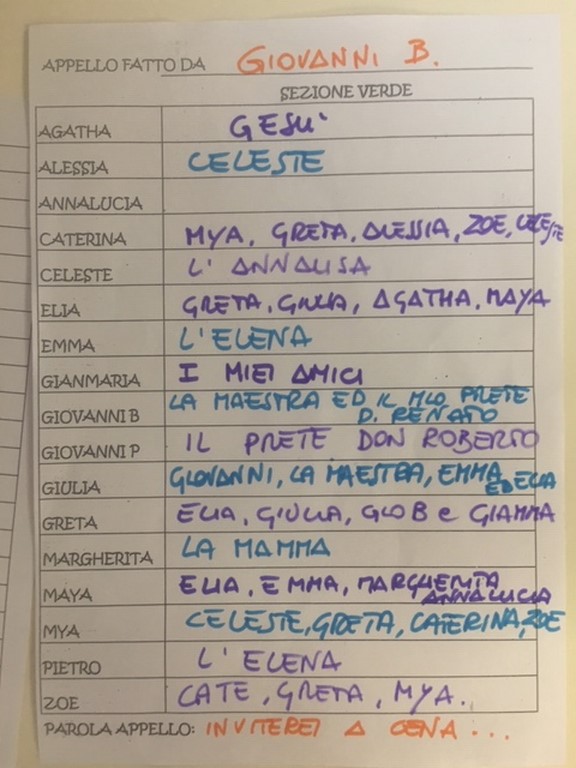 APPELLO FATTO DA GIOVANNI B.
SEZIONE VERDE
AGATHA GESU'
ALESSIA CELESTE
ANNALUCIA
CATERINA MYA, GRETA, ALESSIA, ZOE, CELESTE
CELESTE L'ANNALISA
ELIA GRETA, GIULIA, AGATHA, MAYA
EMMA L'ELENA
GIANMARIA I MIEI AMICI
GIOVANNI B LA MAESTRA ED IL MIO PRETE
D. RENATO
GIOVANNI P IL PRETE DON ROBERTO
GIULIA GIOVANNI, LA MAESTRA, EMMA
ED ELIA
GRETA ELIA, GIULIA, GIO B e GIAMMA
MARGHERITA LA MAMMA
MAYA ELIA, EMMA, MARGHERITA
ANNALUCIA
MYA CELESTE, GRETA, CATERINA, ZOE
PIETRO L'ELENA
ZOE CATE, GRETA, MYA.
PAROLA APPELLO: INVITEREI A CENA...